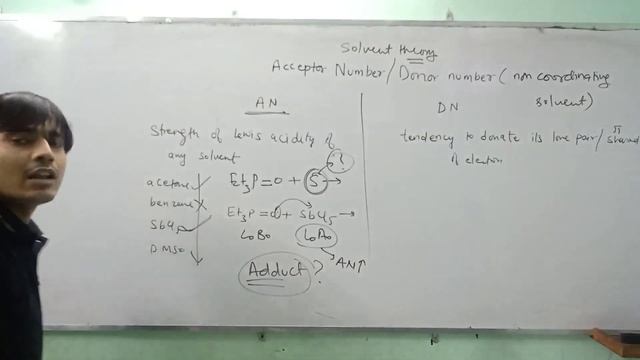 Solvent theory
Acceptor Number/Donor number (non coordinating
solvent)
AN
Strength of lewis acidity of
any solvent
acetone
benzene
SbCl5
DMSO
Et3P=O + S →
?
Et3P=O + SbCl5 →
L.B.
L.A.
AN↑
Adduct ?
DN
tendency to donate its lone pair/
π
of electron